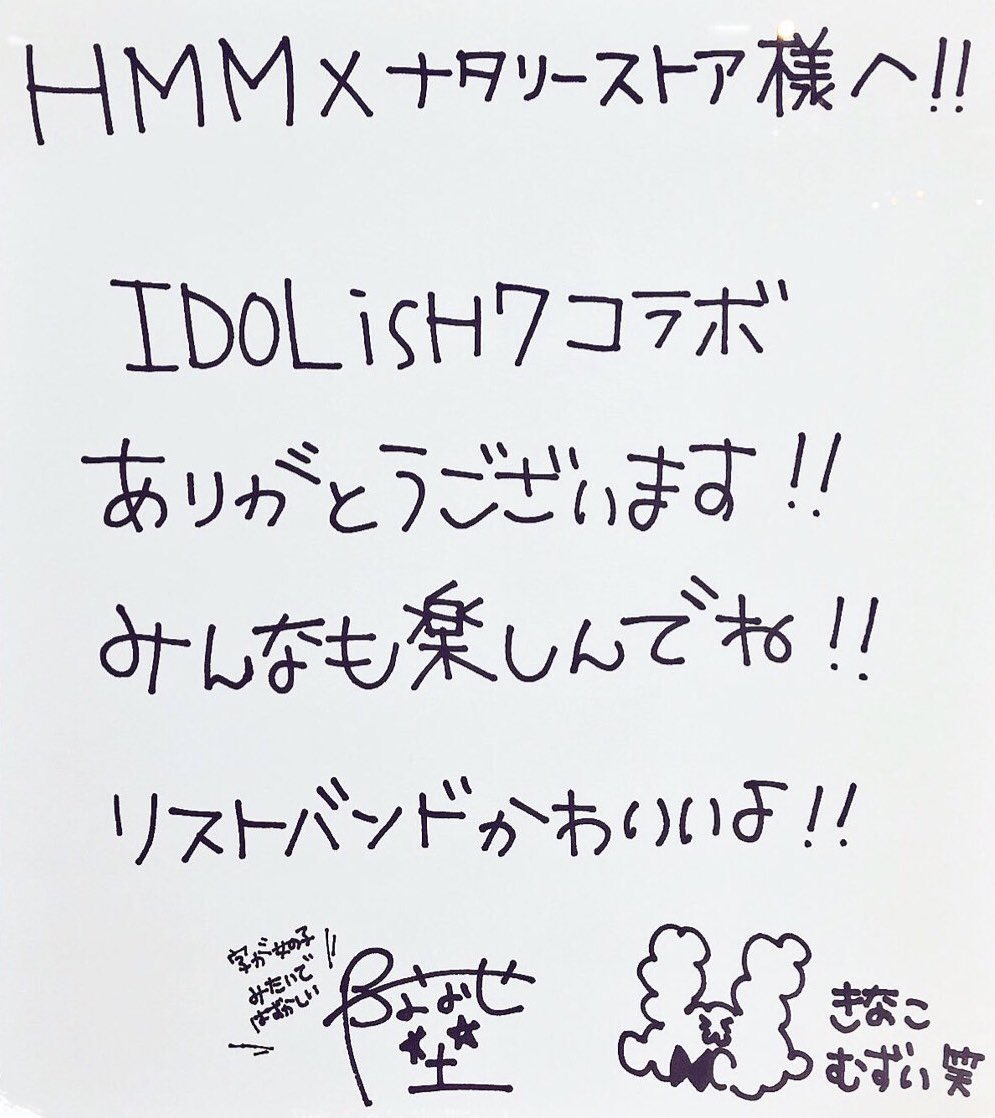 HMM×ナタリーストア様へ!!
IDOLiSH7コラボ
ありがとうございます!!
みんなも楽しんでね!!
リストバンドかわいいよ!!
字が女の子
みたいで
はずかしい
きなこ
むずい笑